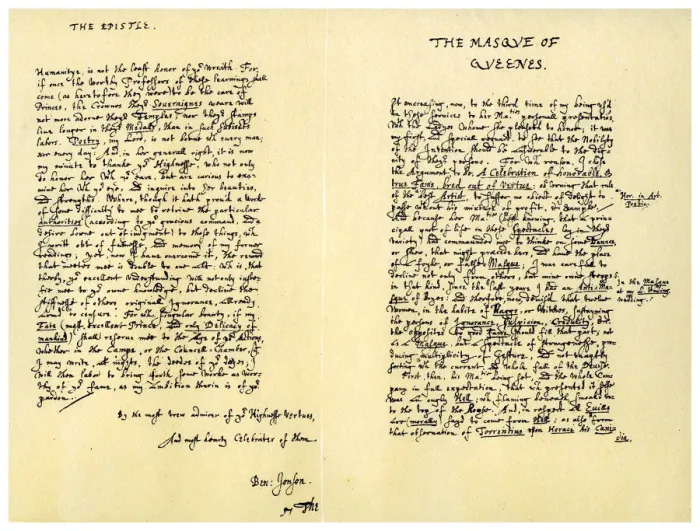 THE EPISTLE.
Humanitye, is not the least honor of yor Wreath. For,
if once the Worthy Professors of these learnings shall
come (as heretofore they were) to be the care of
Princes, the Crownes theyr Soveraignes weare will
not more adorne theyr Temples; nor theyr stamps
live longer in theyr Medalls, than in such Subiects
labors. Poetry, my Lord, is not borne wth every man;
nor every day: And, in her generall right, it is now
my minute to thanke yor Highnesse, who not only
do honor her wth yor eare, but are curious to exa-
mine her wth yor eye, and inquire into her beauties,
and strengths. Where, though it hath prov'd a Worke
of some difficulty to mee to retrive the particular
authorities (according to yor gracious command, and a
desire borne out of iudgment) to those things, wch
I writt out of fullnesse, and memory of my former
readings; Yet, now I have overcome it, the reward
that meetes mee is double to one act: wch is, that
therby, yor excellent Understanding will not only iusti-
fie mee to yor owne knowledge, but decline the
stiffnesse of others originall Ignorance, allready
arm'd to censure. For wch singular bounty, if my
Fate (most excellent Prince, and only Delicacy of
mankind) shall reserve mee to the Age of yor Actions,
whether in the Campe, or the Councell-Chamber, yt
I may write, at nights, the deedes of yor dayes;
I will then labor to bring forth some Worke as wor-
thy of yor fame, as my ambition therin is of yor
pardon.
By the most trew admirer of yor Highnesse Vertues,
And most hearty Celebrater of them.
Ben: Jonson.
The
THE MASQVE OF
QVEENES.
It encreasing, now, to the third time of my being us'd
in these services to her Maties personall presentations,
wth the Ladyes whome she pleaseth to honor; it was
my first, and speciall reguard, to see that the Nobility
of the Invention should be answerable to the dig-
nity of theyr persons. For wch reason, I chose
the Argument, to be, A Celebration of honorable, &
true Fame, bred out of Vertue: observing that rule
of the best Artist, to suffer no obiect of delight to
passe without his mixture of profit, & example.
And because her Matie (best knowing, that a prin-
cipall part of life in these Spectacles lay in theyr
variety) had commaunded mee to thinke on some Daunce,
or shew, that might præcede hers, and have the place
of a foyle, or false-Masque; I was carefull to
decline not only from others, but mine owne stepps
in that kind, since the last yeare I had an Anti-Mas-
que of Boyes: and therefore, now, devis'd that twelve
Women, in the habite of Haggs, or Witches, sustayning
the persons of Ignorance, Suspicion, Credulity, &c.
the opposites to good Fame, should fill that part; not as
a Masque, but a spectacle of strangenesse, pro-
ducing multiplicity of Gesture, and not unaptly
sorting wth the current, and whole fall of the Devise.
First, then, his Matie being set, and the whole Com-
pany in full expectation, that wch presented it selfe
was an ougly Hell; wch flaming beneath, smoakd unto
to the top of the Roofe. And, in respect all Evills
are (morally) sayd to come from Hell; as also from
that observation of Torrentius upon Horace his Cani-
dia,
Hor. in Art.
Poetic.
In the Masque
at my L. Hading.
wedding.